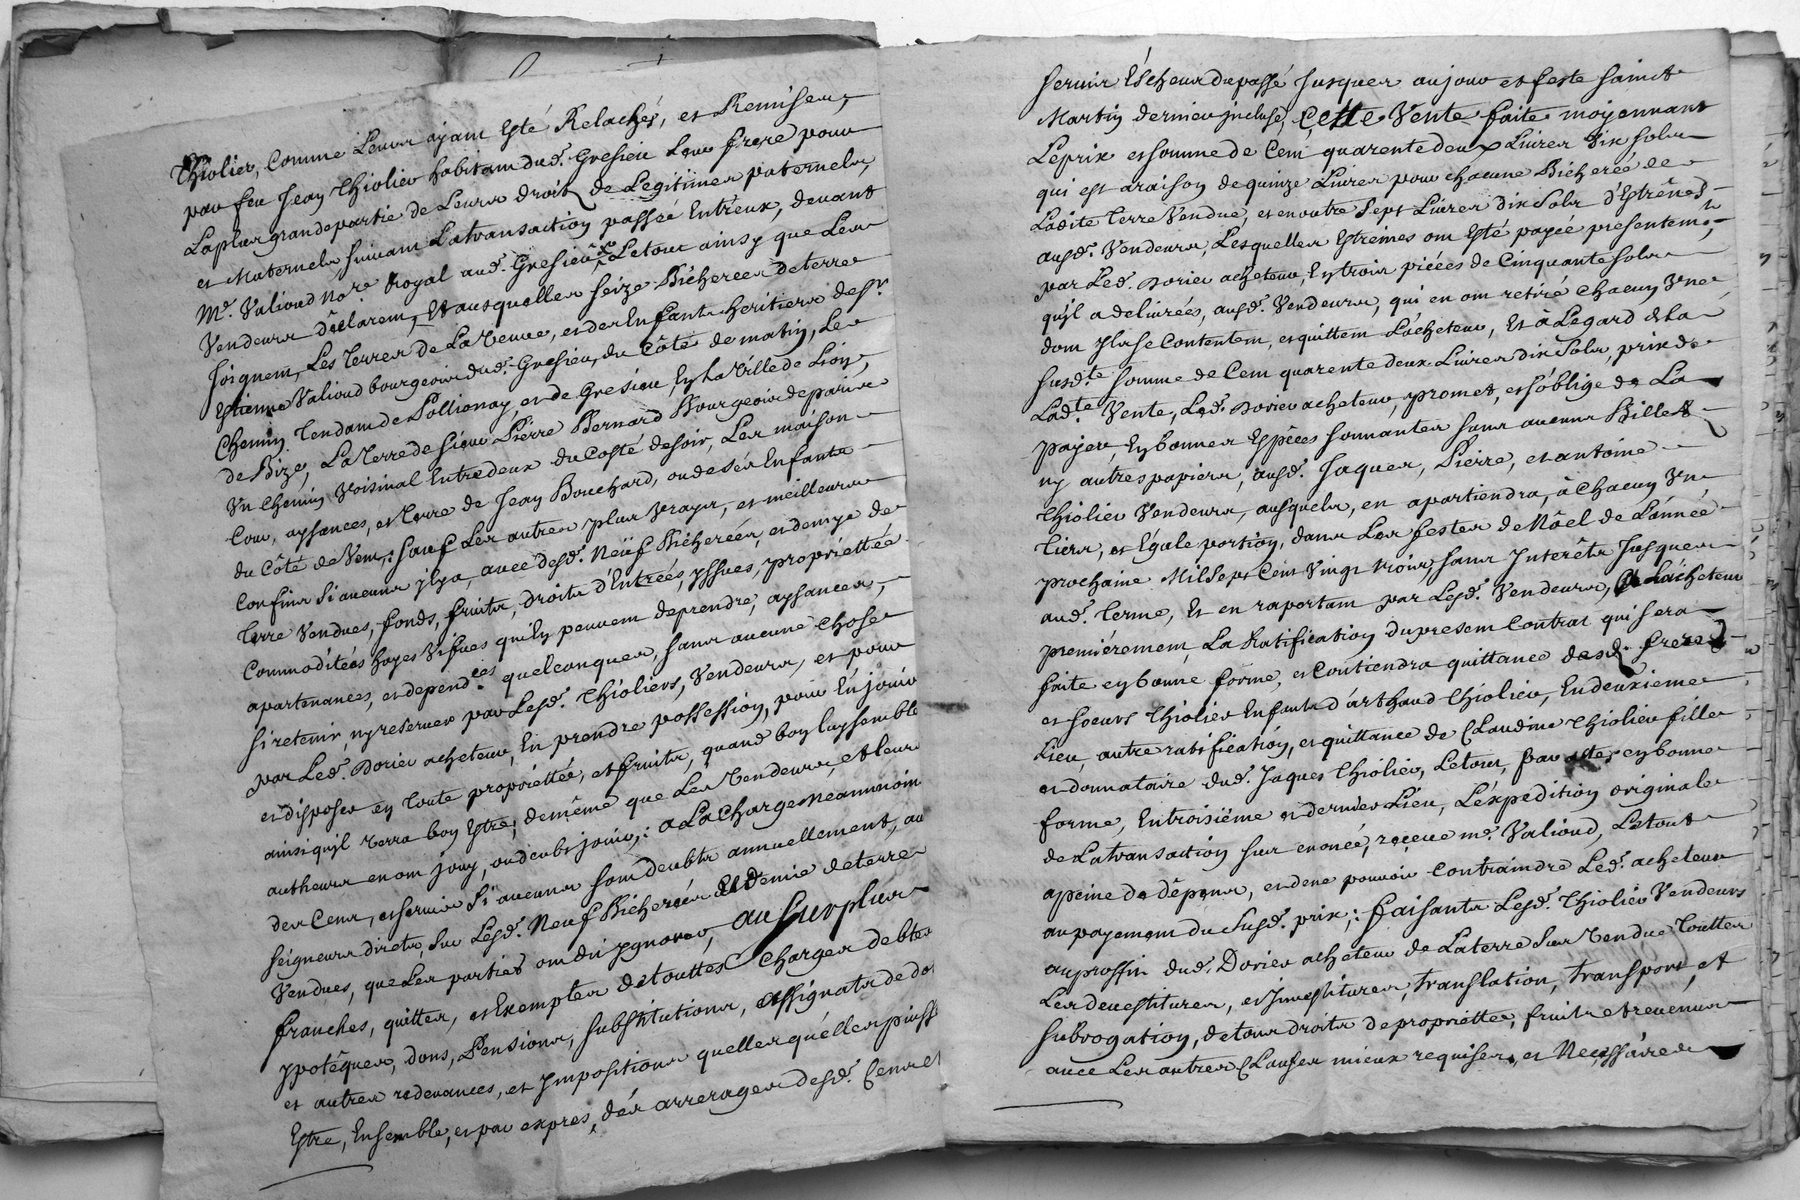 Thiolier, Comme Leurs ayant Esté Relachés, et Remiseu,
par feu Jean Thiolier habitant dud. Gresieu Leur frere pour
La plus grande partie de Leurs droits de Legitimes paternels,
et Maternels suivant La transaction passée Entreux, devant
Me. Valioud No.re Royal aud. Gresieu Le tout ainsy que Les
Vendeurs déclarent, Et ausquelles seize Bicherées de terre
Joignent, Les Terres de La Veuve, et des Enfants heritiers de Sr.
Estienne Valioud bourgeois dud. Gresieu, du Côté de matin, Le
Chemin Tendant de Pollionay, et de Gresieu, En La Ville de Lion,
de Bize, La Terre de sieur Pierre Bernard Bourgeois de paris
Un Chemin Voisinal Entre deux du Costé de soir, Les maison
Cour, aysances, et Terre de Jean Bouchard, ou de ses Enfants
du Côté de Vent; Sauf Les autres plus Vrays, et meilleurs
Confins si aucuns jlya, avec desd. Neuf Bicherées, et demye de
Terre Vendues, fonds, fruits, droits d'Entrées, yssues, propriettée
Commoditées hayes Vifves quils peuvent deprendre, aysances,
apartenances, et depend.ces quelconques, sans aucune chose
si retenir, ny reserver par Lesd. Thioliers, Vendeurs, et pour
par Led. Dorier acheteur, En prendre possession, pour En jouir
et disposer en toute propriettée, et fruits, quand bon luy semble
ainsi quil verra bon Estre, de même que Les Vendeurs, et leurs
autheurs en ont jouy, ou deubt jouir; a La Charge neanmoins
des Cens, et servis Si aucuns sont deubts annuellement, au
seigneurs directs, sur Lesd. Neuf Bicherées Et demie de terre
Vendues, que Les parties ont dit ygnorer, au surplus
franches, quittes, et Exemptes de touttes charges debtes
ypotêques, dons, Pensions, substitutions, assignats de do
et autres redevances, et jmpositions quelles quelles puiss
Estre, Ensemble, et par expres, des arrerages desd. Cens et
servis Escheus du passé Jusques au jour et feste saint
Martin dernier jncluse, Cette Vente faite moyennant
Le prix et somme de Cent quarente deux Livres Dix Sols
qui est a raison de quinze Livres pour chacune Bicherée de
Ladite Terre Vendue, et en outre Sept Livres Dix Sols d'Estrênes
ausd. Vendeurs, Lesquelles Estreines ont Esté payée presentemt.
par Led. Dorier acheteur, En trois piéces de Cinquante Sols
quil a delivrées, ausd. Vendeurs, qui en ont retiré chacun Une
dont jls se Contentent, et quittent L'acheteur, Et à L'egard de La
susd.te somme de Cent quarente deux Livres dix Sols, prix de
Lad.te Vente, Led. Dorier acheteur, promet, et s'oblige de La
payer, En bonnes Espêces sonnantes sans aucuns Billets
ny autres papiers, ausd. Jaques, Pierre, et antoine
Thiolier Vendeurs, ausquels, en apartiendra, à Chacun Un
Tiers, et Egale portion, dans Les festes de Nôel de L'année
prochaine Mil Sept Cent Vingt trois, sans Interêts Jusques
aud. Terme, Et en raportant par Lesd. Vendeurs, a L'acheteur
premiérement, La Ratification du present Contrat qui sera
faite en bonne forme, et Contiendra quittance desd. freres
et soeurs Thiolier Enfants d'arthaud Thiolier, En deuxieme
Lieu, autre ratification, et quittance de Claudine Thiolier fille
et donnataire dud. Jaques Thiolier, Le tout, par acte, en bonne
forme, En troisiême et dernier Lieu, L'éxpedition originale
de La transaction sus enoncé, reçeue me. Valioud, Le tout
a peine de dêpens, et de ne pouvoir Contraindre Led. acheteur
au payement du Susd. prix; faisants Lesd. Thiolier Vendeurs
au proffit dud. Dorier acheteur de La terre Sus Vendue Touttes
Les devestitures, et Jnvestitures, translation, transport, et
Subrogation, de tous droits de propriettée, fruits et revenus
avec Les autres Clauses mieux requises, et Necessaires